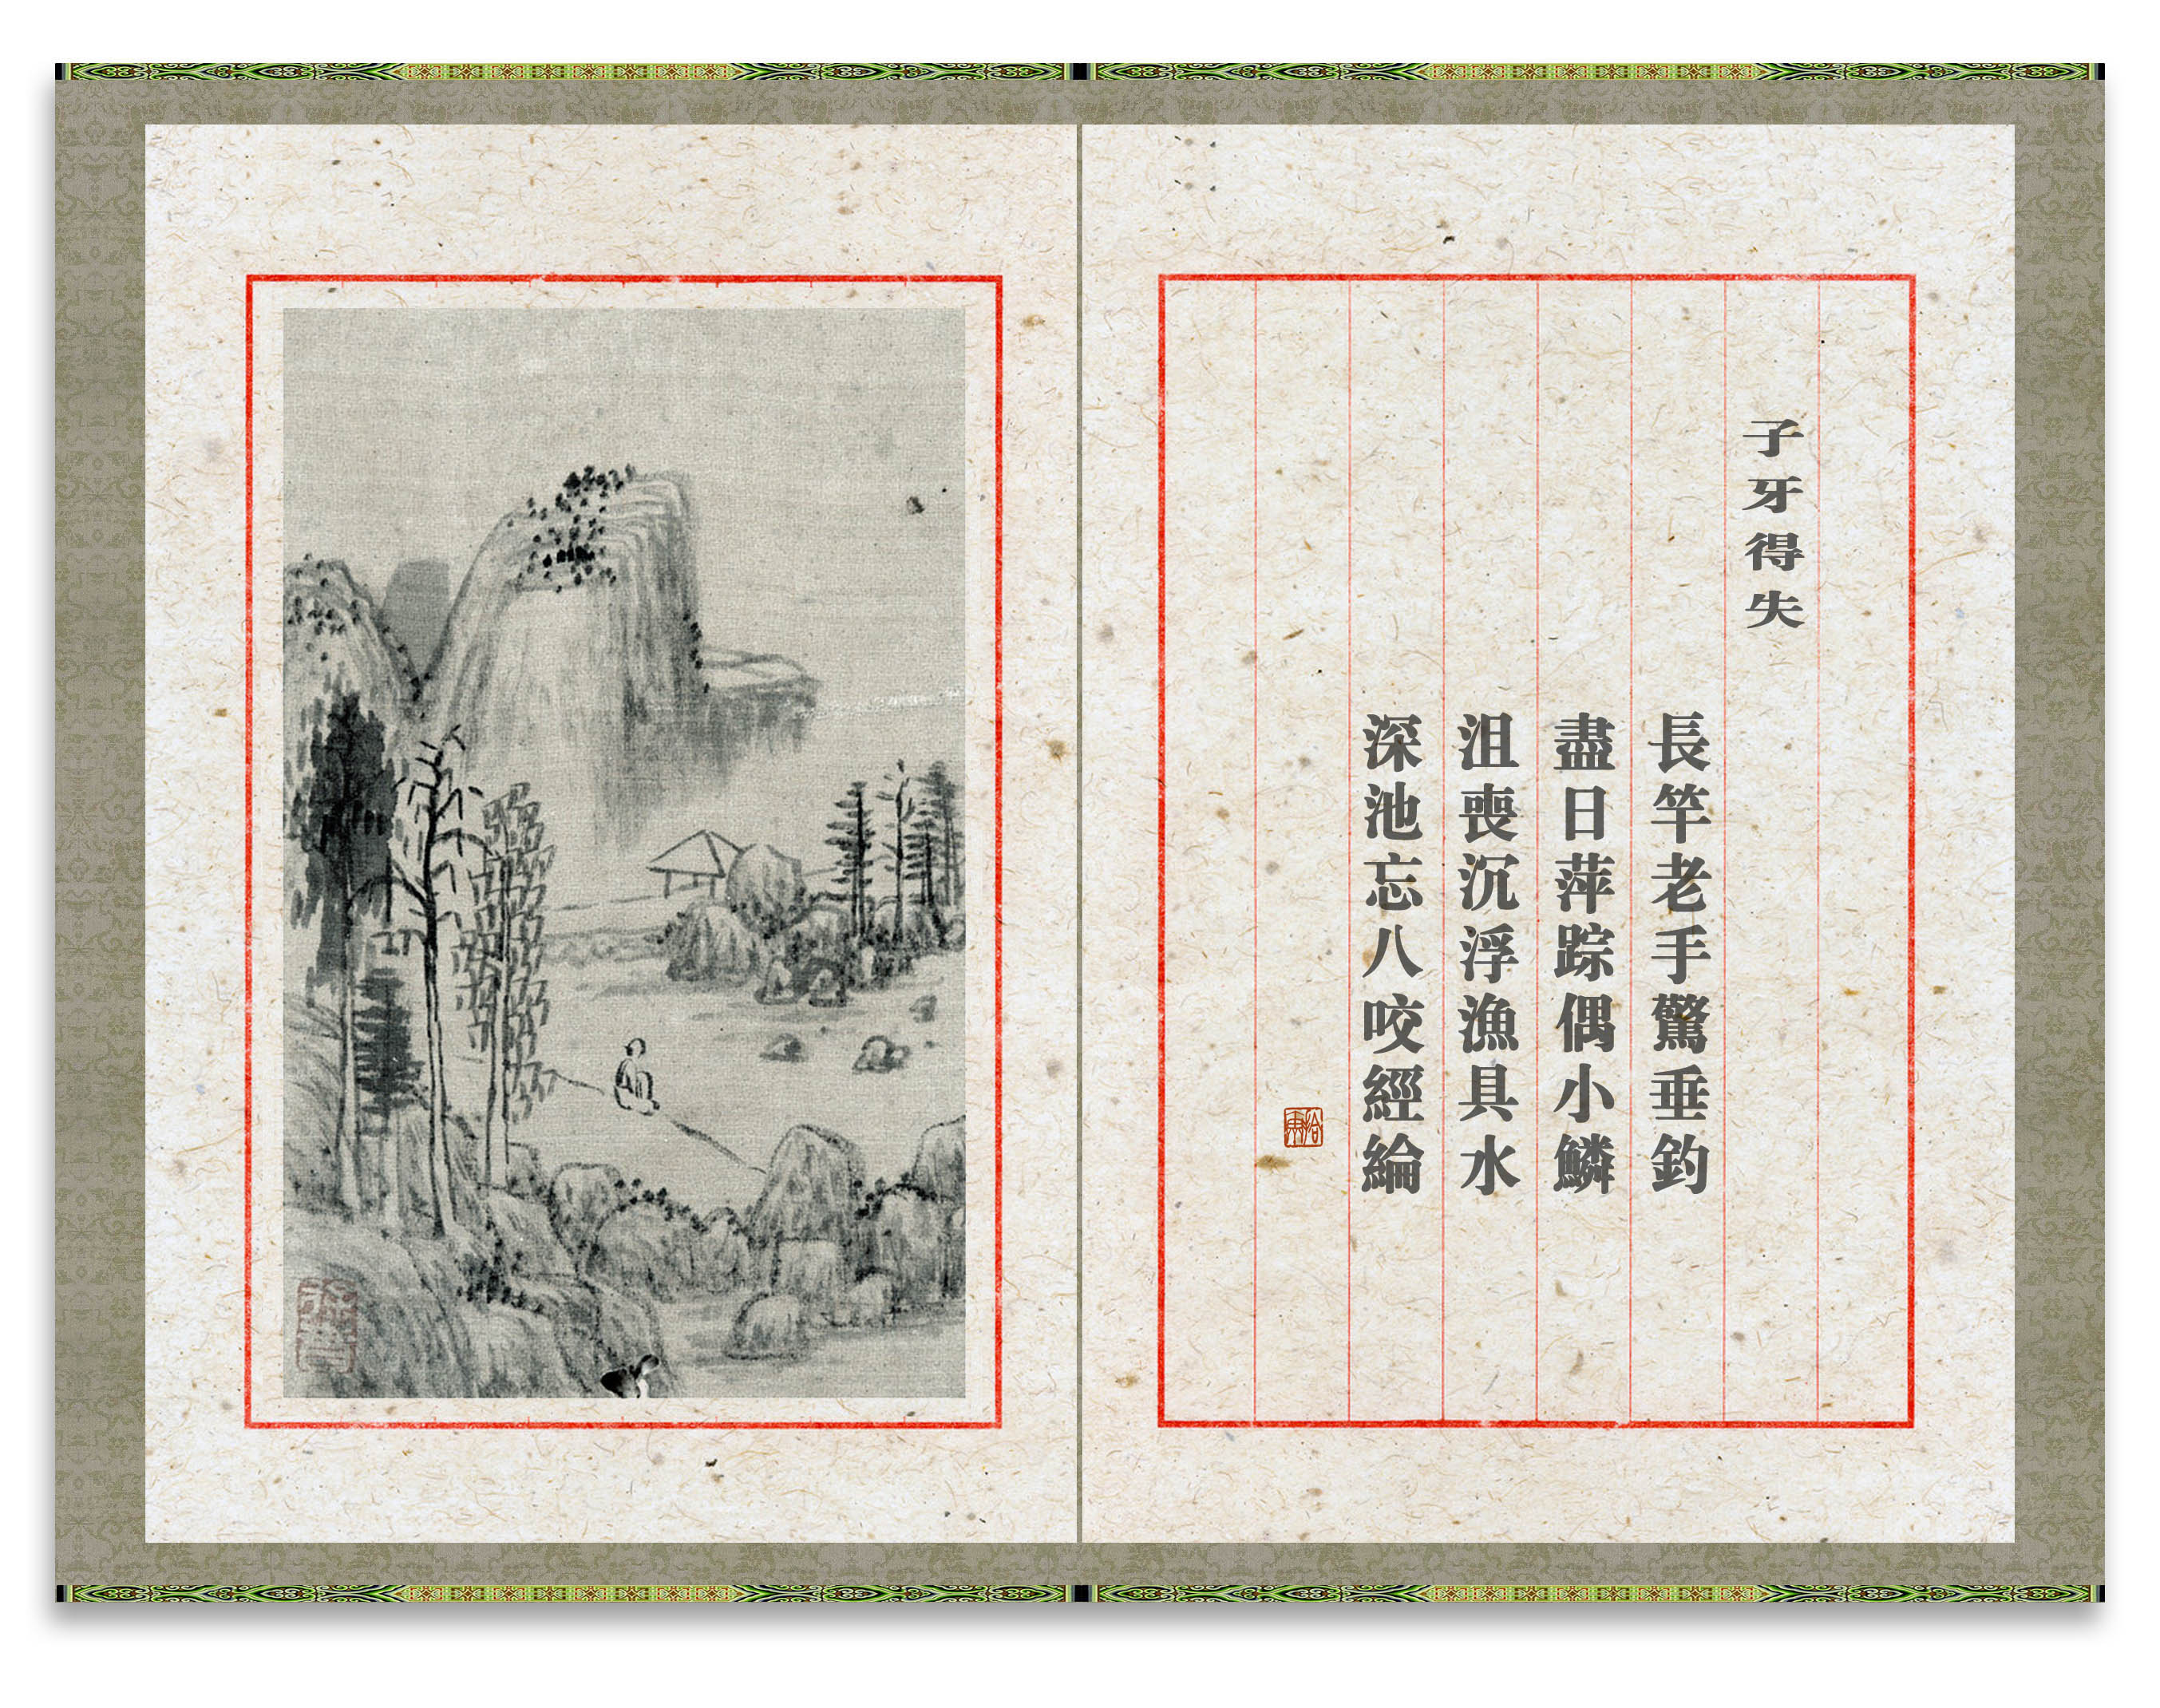 子牙得失
長竿老手驚垂釣
盡日萍踪偶小鱗
沮喪沉浮漁具水
深池忘八咬經綸